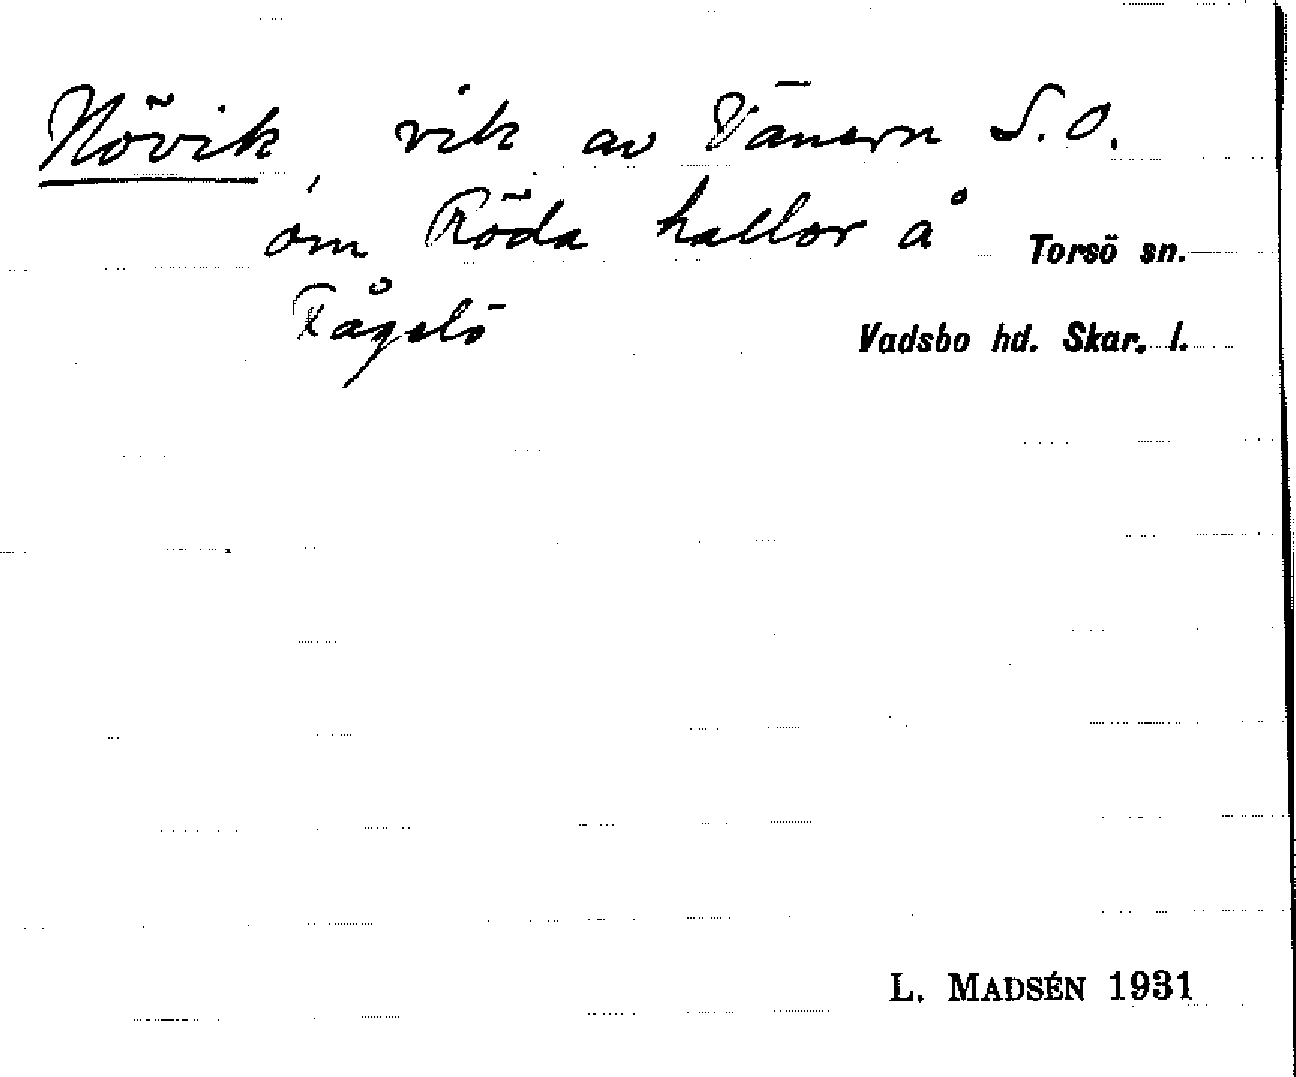 Növik, vik av Vänern S.O.
om Röda hallor å
Torsö sn.
Fågelö
Vadsbo hd. Skar. l.
L. MADSÉN 1931